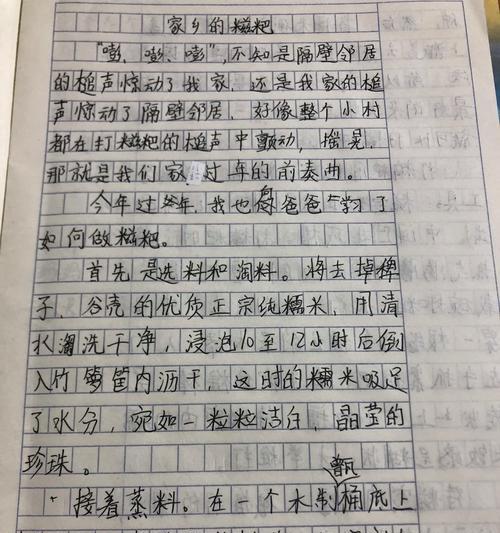 家乡的糍粑
"嘭、嘭、嘭",不知是隔壁邻居
的槌声惊动了我家,还是我家的槌
声惊动了隔壁邻居,好像整个小村
都在打糍粑的槌声中颤动,摇晃,
那就是我们家过年的前奏曲。
今年过年,我也向爸爸学习了
如何做糍粑。
首先是选料和淘料。将去掉稗
子、谷壳的优质正宗纯糯米,用清
水淘洗干净,浸泡10至12小时后倒
入竹箩筐内沥干,这时的糯米吸足
了水分,宛如一粒粒洁白、晶莹的
珍珠。
接着蒸料。在一个木制甑桶底上